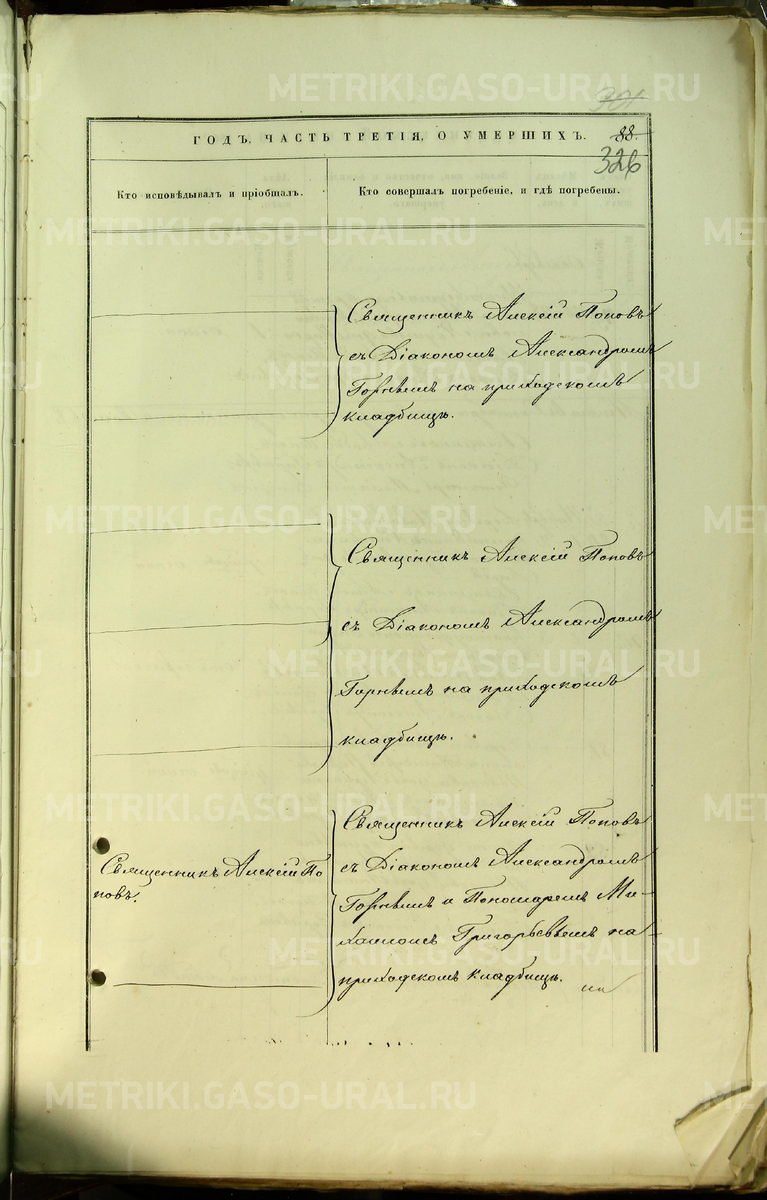 METRIKI.GASO-URAL.RU
301
ГОДЪ, ЧАСТЬ ТРЕТІЯ, О УМЕРШИХЪ. 88.
326
Кто исповѣдывалъ и пріобщалъ.
Кто совершалъ погребеніе, и гдѣ погребены.
Священникъ Алексій Поповъ
съ Діакономъ Александромъ
на приходскомъ
кладбищѣ.
Священникъ Алексій Поповъ
съ Діакономъ Александромъ
на приходскомъ
кладбищѣ.
Священникъ Алексій По
повъ.
Священникъ Алексій Поповъ
съ Діакономъ Александромъ
и Пономаремъ Ми-
хаиломъ Григорьевымъ на
приходскомъ кладбищѣ.